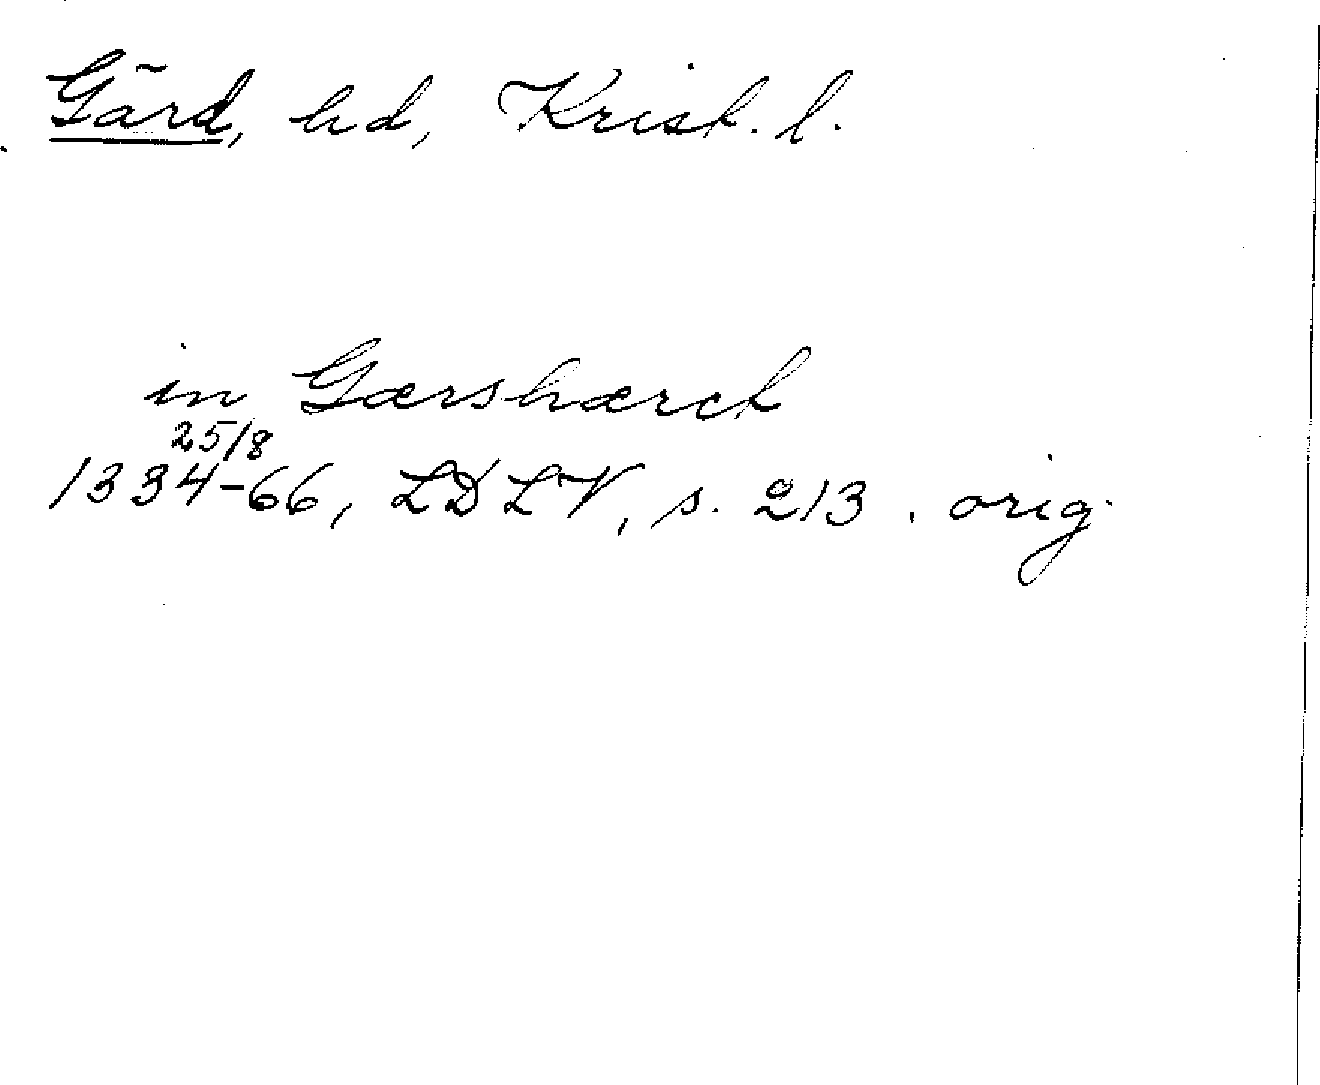 Gärd, hd, Krist. l.
in Gærshærcd
25/8
1334-66, LDLV, s. 213. orig.